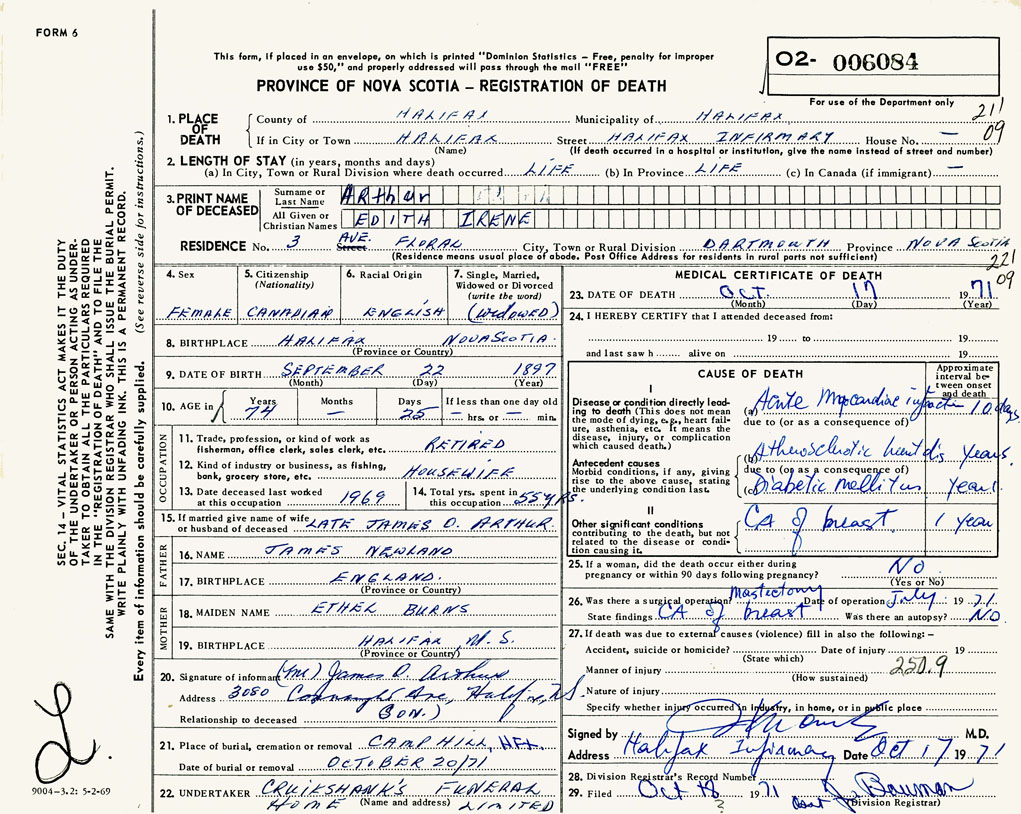 FORM 6
This form, if placed in an envelope, on which is printed "Dominion Statistics – Free, penalty for improper
use $50," and properly addressed will pass through the mail "FREE"
O2- 006084
PROVINCE OF NOVA SCOTIA – REGISTRATION OF DEATH
For use of the Department only
211
09
1. PLACE OF DEATH
County of HALIFAX Municipality of HALIFAX
If in City or Town HALIFAX Street HALIFAX INFIRMARY House No. —
(Name) (If death occurred in a hospital or institution, give the name instead of street and number)
2. LENGTH OF STAY (in years, months and days)
(a) In City, Town or Rural Division where death occurred LIFE (b) In Province LIFE (c) In Canada (if immigrant) —
3. PRINT NAME OF DECEASED
Surname or Last Name ARthur
All Given or Christian Names EDITH IRENE
RESIDENCE No. 3 AVE. Street FLORAL City, Town or Rural Division DARTMOUTH Province NOVA SCOTIA
(Residence means usual place of abode. Post Office Address for residents in rural parts not sufficient)
221
09
4. Sex 5. Citizenship (Nationality) 6. Racial Origin 7. Single, Married, Widowed or Divorced (write the word)
FEMALE CANADIAN ENGLISH (WIDOWED)
8. BIRTHPLACE HALIFAX NOVA SCOTIA
(Province or Country)
9. DATE OF BIRTH SEPTEMBER 22 1897
(Month) (Day) (Year)
10. AGE in Years Months Days If less than one day old
74 — 25 — hrs. or — min.
OCCUPATION
11. Trade, profession, or kind of work as fisherman, office clerk, sales clerk, etc. RETIRED
12. Kind of industry or business, as fishing, bank, grocery store, etc. HOUSEWIFE
13. Date deceased last worked at this occupation 1969
14. Total yrs. spent in this occupation 55 YRS.
15. If married give name of wife or husband of deceased LATE JAMES O. ARTHUR
FATHER
16. NAME JAMES NEWLAND
17. BIRTHPLACE ENGLAND.
(Province or Country)
MOTHER
18. MAIDEN NAME ETHER BURNS
19. BIRTHPLACE HALIFAX N.S.
(Province or Country)
20. Signature of informant (Mr.) James O. Arthur
Address 3080 Connaught Ave, Halifax, N.S.
Relationship to deceased SON.)
21. Place of burial, cremation or removal CAMP HILL, HFX.
Date of burial or removal OCTOBER 20/71
22. UNDERTAKER CRUIKSHANK'S FUNERAL
HOME (Name and address) LIMITED
MEDICAL CERTIFICATE OF DEATH
23. DATE OF DEATH OCT. 17 1971
(Month) (Day) (Year)
24. I HEREBY CERTIFY that I attended deceased from:
19 to 19
and last saw h alive on 19
CAUSE OF DEATH
Approximate interval between onset and death
I
Disease or condition directly leading to death (This does not mean the mode of dying, e.g., heart failure, asthenia, etc. It means the disease, injury, or complication which caused death.)
(a) Acute Myocardial infarction 10 days
due to (or as a consequence of)
Antecedent causes
Morbid conditions, if any, giving rise to the above cause, stating the underlying condition last.
(b) Atherosclerotic heart dis years.
due to (or as a consequence of)
(c) Diabetic mellitus years
II
Other significant conditions contributing to the death, but not related to the disease or condition causing it.
CA of breast 1 year
25. If a woman, did the death occur either during pregnancy or within 90 days following pregnancy? No
(Yes or No)
26. Was there a surgical operation? Mastectomy Date of operation July 1971
State findings CA of breast Was there an autopsy? NO.
27. If death was due to external causes (violence) fill in also the following: –
Accident, suicide or homicide? Date of injury 19
(State which)
Manner of injury 250.9
(How sustained)
Nature of injury
Specify whether injury occurred in industry, in home, or in public place
Signed by M.D.
Address Halifax Infirmary Date Oct 17 1971
28. Division Registrar's Record Number
29. Filed Oct 18 1971 Bowman
? (Division Registrar)
SEC. 14 – VITAL STATISTICS ACT MAKES IT THE DUTY
OF THE UNDERTAKER OR PERSON ACTING AS UNDER-
TAKER TO OBTAIN ALL THE PARTICULARS REQUIRED
IN THE "REGISTRATION OF DEATH" AND TO FILE THE
SAME WITH THE DIVISION REGISTRAR WHO SHALL ISSUE THE BURIAL PERMIT.
WRITE PLAINLY WITH UNFADING INK. THIS IS A PERMANENT RECORD.
Every item of information should be carefully supplied. (See reverse side for instructions.)
9004-3.2: 5-2-69